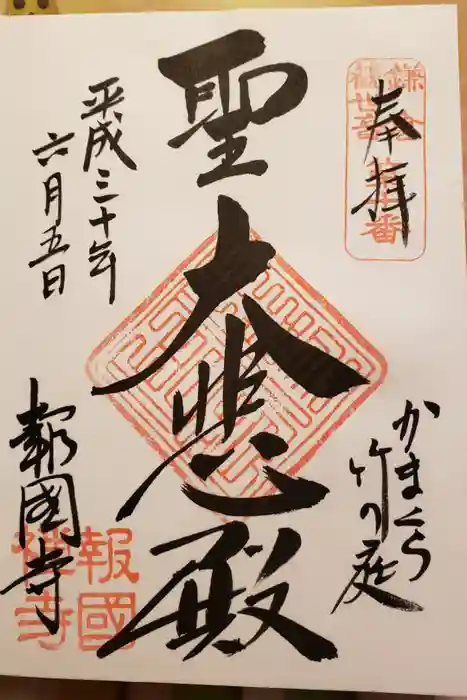 奉拝
鎌倉
観世音
第十番
かまくら
竹の庭
聖大悲殿
平成三十年
六月五日
報國寺
報國
禅寺